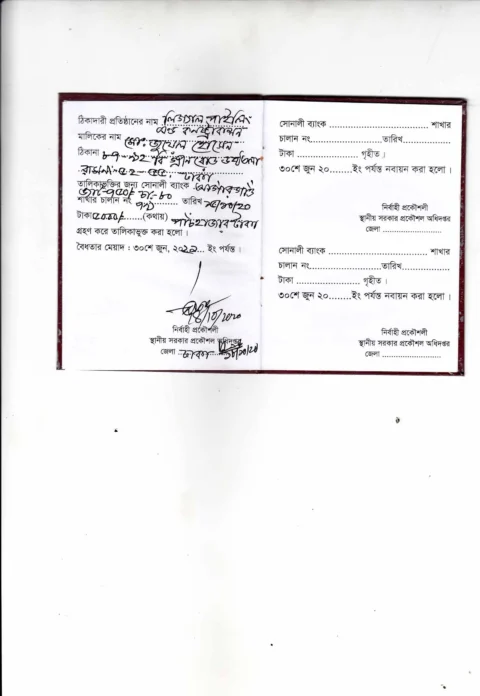 ঠিকাদারী প্রতিষ্ঠানের নাম লিভ্যাল পাইলিং
এন্ড কনস্ট্রাকশন
মালিকের নাম মোঃ জুয়েল হোসেন
ঠিকানা
ঢাকা
তালিকাভুক্তির জন্য সোনালী ব্যাংক
শাখার চালান নং তারিখ
টাকা ৫০০০/ (কথায়) পাঁচ হাজার টাকা
গ্রহণ করে তালিকাভুক্ত করা হলো।
বৈধতার মেয়াদ : ৩০শে জুন, ২০২১... ইং পর্যন্ত।
নির্বাহী প্রকৌশলী
স্থানীয় সরকার প্রকৌশল অধিদপ্তর
জেলা ঢাকা
সোনালী ব্যাংক .............................. শাখার
চালান নং..........................তারিখ..................
টাকা ........................ গৃহীত।
৩০শে জুন ২০........ইং পর্যন্ত নবায়ন করা হলো।
নির্বাহী প্রকৌশলী
স্থানীয় সরকার প্রকৌশল অধিদপ্তর
জেলা ........................
সোনালী ব্যাংক .............................. শাখার
চালান নং........................তারিখ..................
টাকা .......................... গৃহীত।
৩০শে জুন ২০........ইং পর্যন্ত নবায়ন করা হলো।
নির্বাহী প্রকৌশলী
স্থানীয় সরকার প্রকৌশল অধিদপ্তর
জেলা ........................